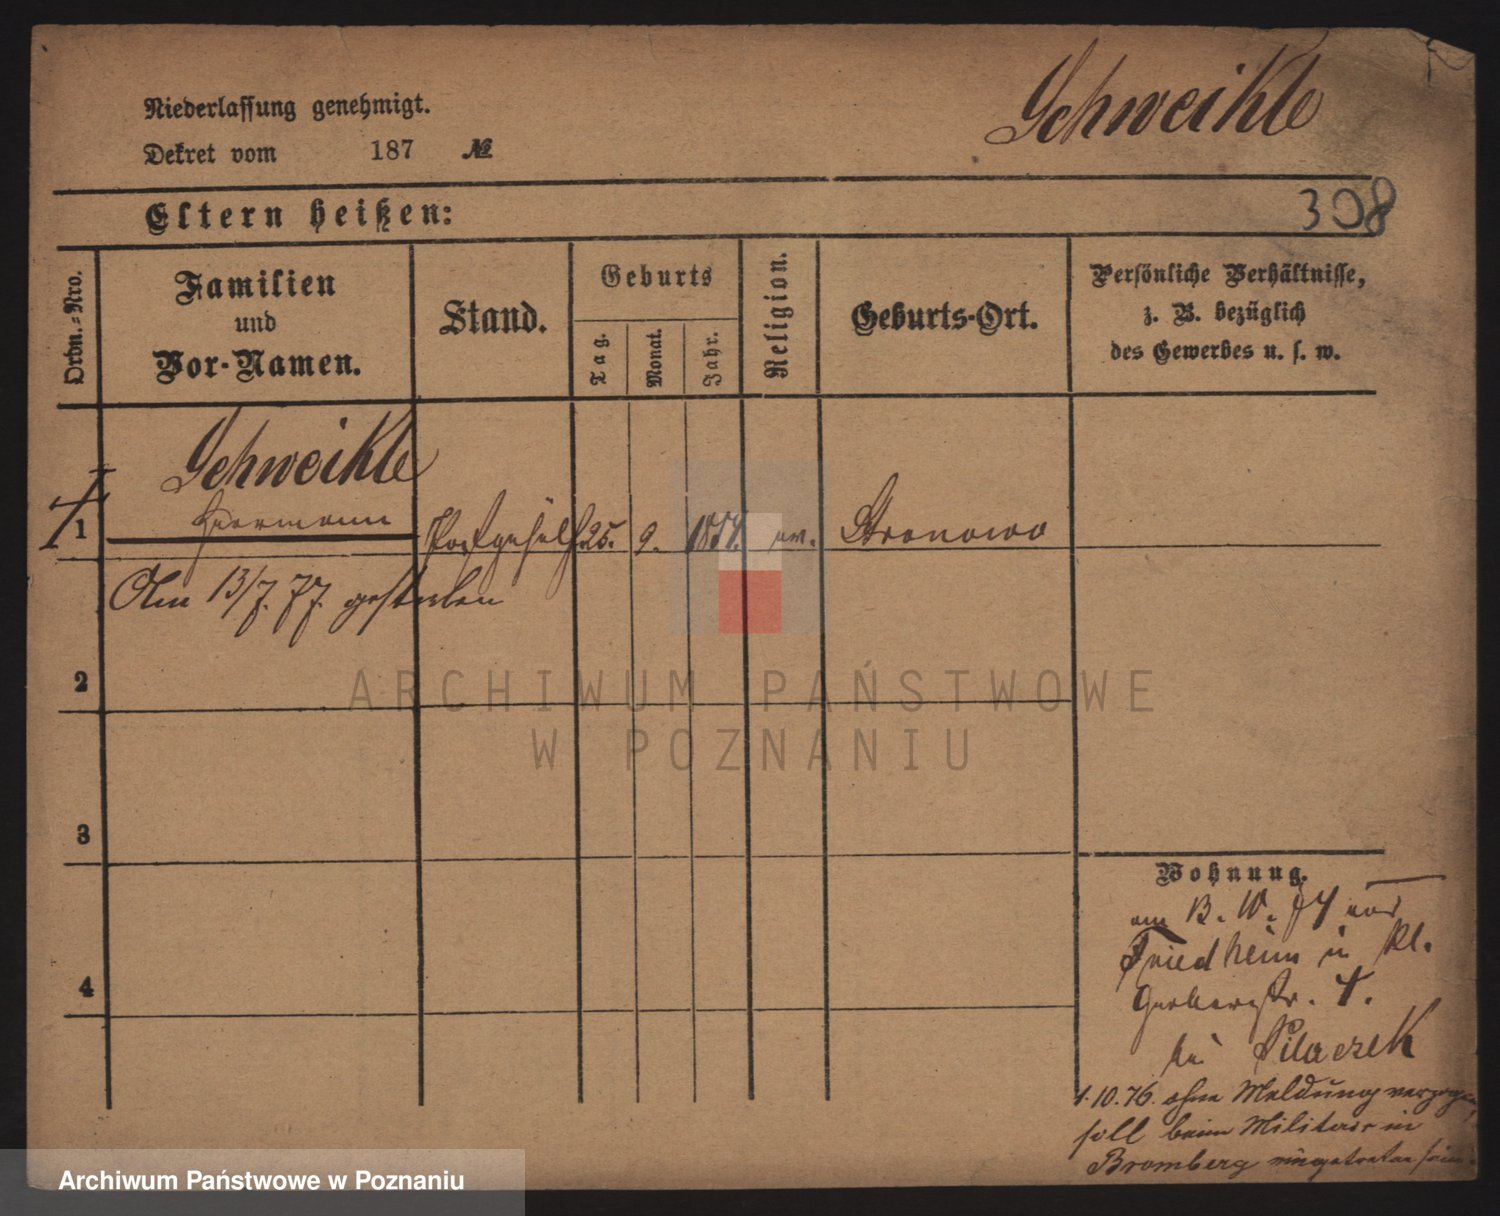 Schweikle
Niederlassung genehmigt.
Dekret vom 187 №
308
Eltern heißen:
Ordn.-Nro.
Familien
und
Vor-Namen.
Stand.
Geburts
Tag.
Monat.
Jahr.
Religion.
Geburts-Ort.
Persönliche Verhältnisse,
z. B. bezüglich
des Gewerbes u. s. w.
Schweikle
1 Hermann Postgehülfe 25. 9. 1854. ev. Kronowo
Am 13/7. 77. gestorben
2
3
4
Wohnung.
am 13. 10. 74 von
Friedheim in Kl.
Gerberstr. 4.
bei Pilaczek
1.10.76. ohne Meldung verzogen,
soll beim Militair in
Bromberg eingetreten sein.
ARCHIWUM PAŃSTWOWE
W POZNANIU
Archiwum Państwowe w Poznaniu